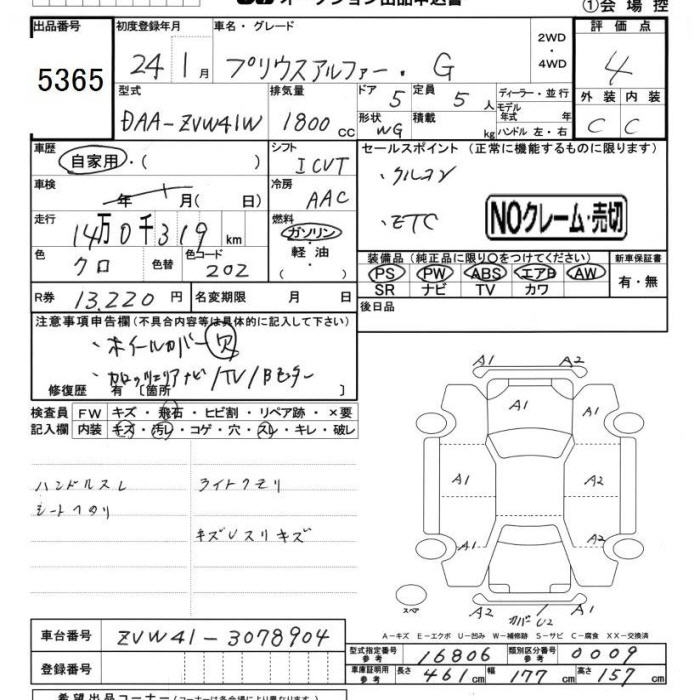 オークション出品申込書
①会場控
出品番号
5365
初度登録年月
24 1月
車名・グレード
プリウスアルファー・G
2WD
・
4WD
評価点
4
型式
DAA-ZVW41W
排気量
1800 cc
ドア 5
定員 5 人
ディーラー・並行
モデル年式 年
ハンドル 左・右
形状 WG
積載 kg
外装 内装
C C
車歴
自家用・( )
シフト
ICVT
セールスポイント(正常に機能するものに限ります)
・クルコン
・ETC
NOクレーム・売切
車検
年 月(日)
冷房
AAC
走行
14万0千319 km
燃料
ガソリン・
軽油・
( )
色
クロ
色替
色コード
202
装備品(純正品に限り○をつけてください)
PS PW ABS エアB AW
SR ナビ TV カワ
新車保証書
有・無
R券 13,220円
名変期限 月 日
後日品
注意事項申告欄(不具合内容等は具体的に記入して下さい)
・ホイールカバー欠
・カロッツェリアナビ/TV/Bモニター
修復歴 有〔箇所 〕
検査員 FW キズ・飛石・ヒビ割・リペア跡・×要
記入欄 内装 キズ・汚レ・コゲ・穴・スレ・キレ・破レ
ハンドルスレ
シートヘタリ
ライトクモリ
キズUスリキズ
A1 A2
A1
A1
A1 A2
A1 A2
A2 カバーU2
スペア
A-キズ E-エクボ U-凹み W-補修跡 S-サビ C-腐食 XX-交換済
車台番号 ZVW41-3078904
登録番号
型式指定番号 参考 16806
類別区分番号 参考 0009
車庫証明用 参考 長さ 461cm 幅 177cm 高さ 157cm
希望出品コーナー